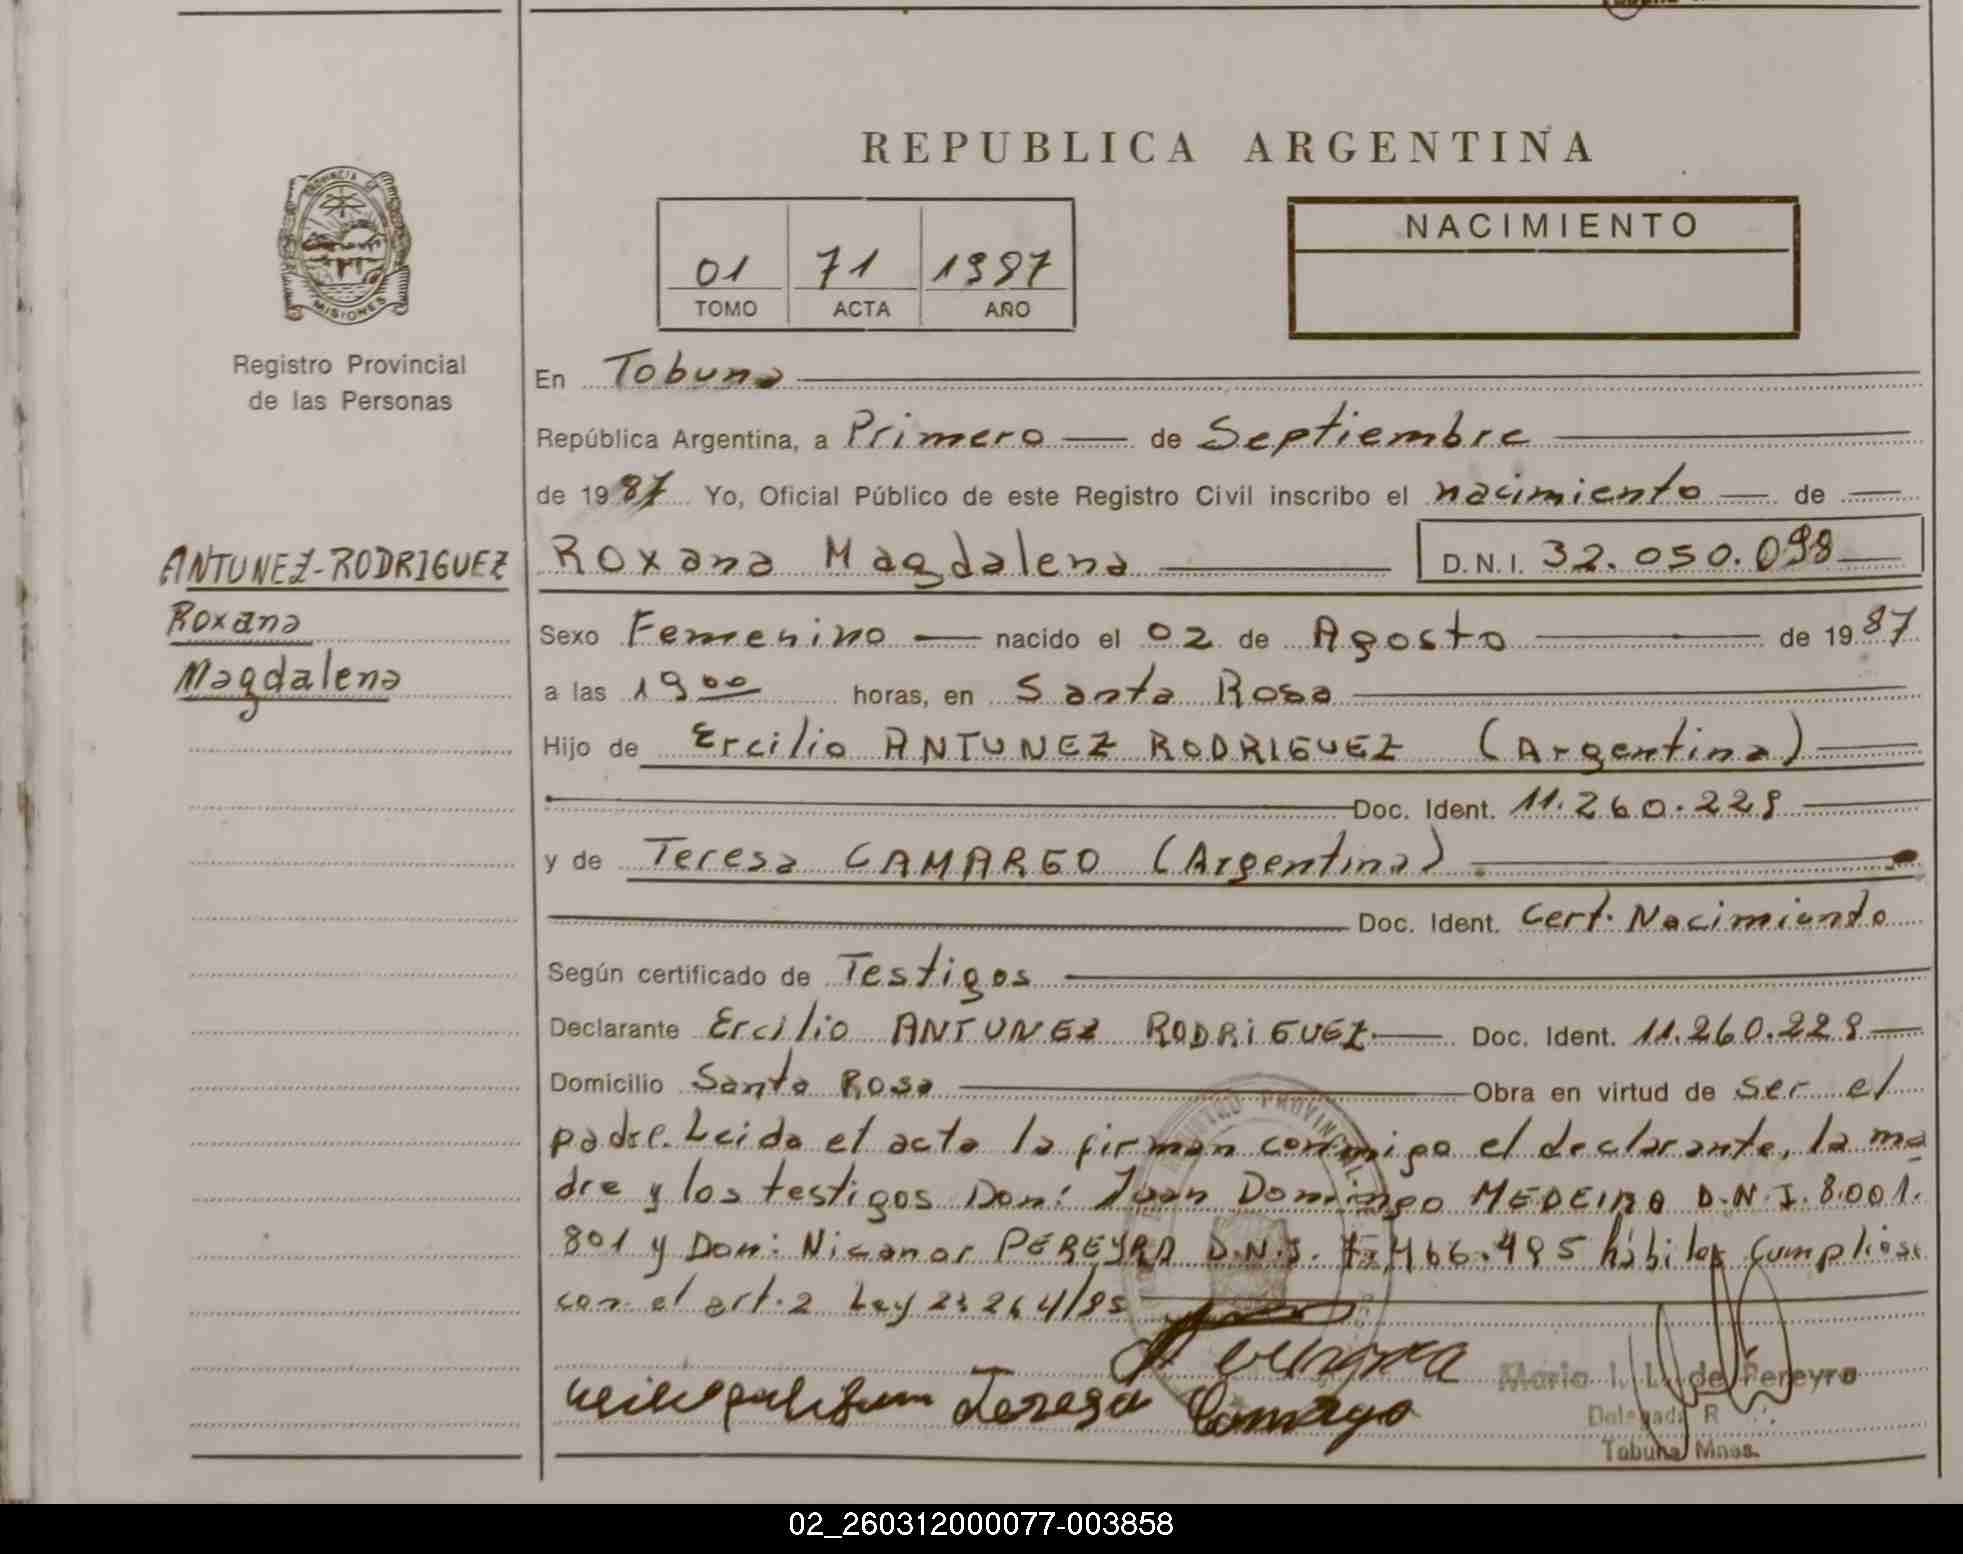 REPUBLICA ARGENTINA
PROVINCIA DE
MISIONES
Registro Provincial
de las Personas
NACIMIENTO
01 71 1987
TOMO ACTA AÑO
En Tobuna
República Argentina, a Primero de Septiembre
de 1987 Yo, Oficial Público de este Registro Civil inscribo el nacimiento de
ANTUNEZ-RODRIGUEZ
Roxana
Magdalena
Roxana Magdalena D.N.I. 32.050.098
Sexo Femenino nacido el 02 de Agosto de 1987
a las 19 00 horas, en Santa Rosa
Hijo de Ercilio ANTUNEZ RODRIGUEZ (Argentina)
Doc. Ident. 11.260.228
y de Teresa CAMARGO (Argentina)
Doc. Ident. Cert. Nacimiento
Según certificado de Testigos
Declarante Ercilio ANTUNEZ RODRIGUEZ Doc. Ident. 11.260.228
Domicilio Santa Rosa Obra en virtud de ser el
padre. Leida el acta la firman conmigo el declarante, la ma
dre y los testigos Don: Juan Domingo MEDEIRO D.N.I. 8.001.
801 y Don: Nicanor PEREYRA D.N.I. 466.495 hábiles Cumpliose
con el art. 2 Ley 23264/85
Teresa Camargo
Maria I. L. de Pereyra
Delegada R
Tobuna Mnes.
02_260312000077-003858